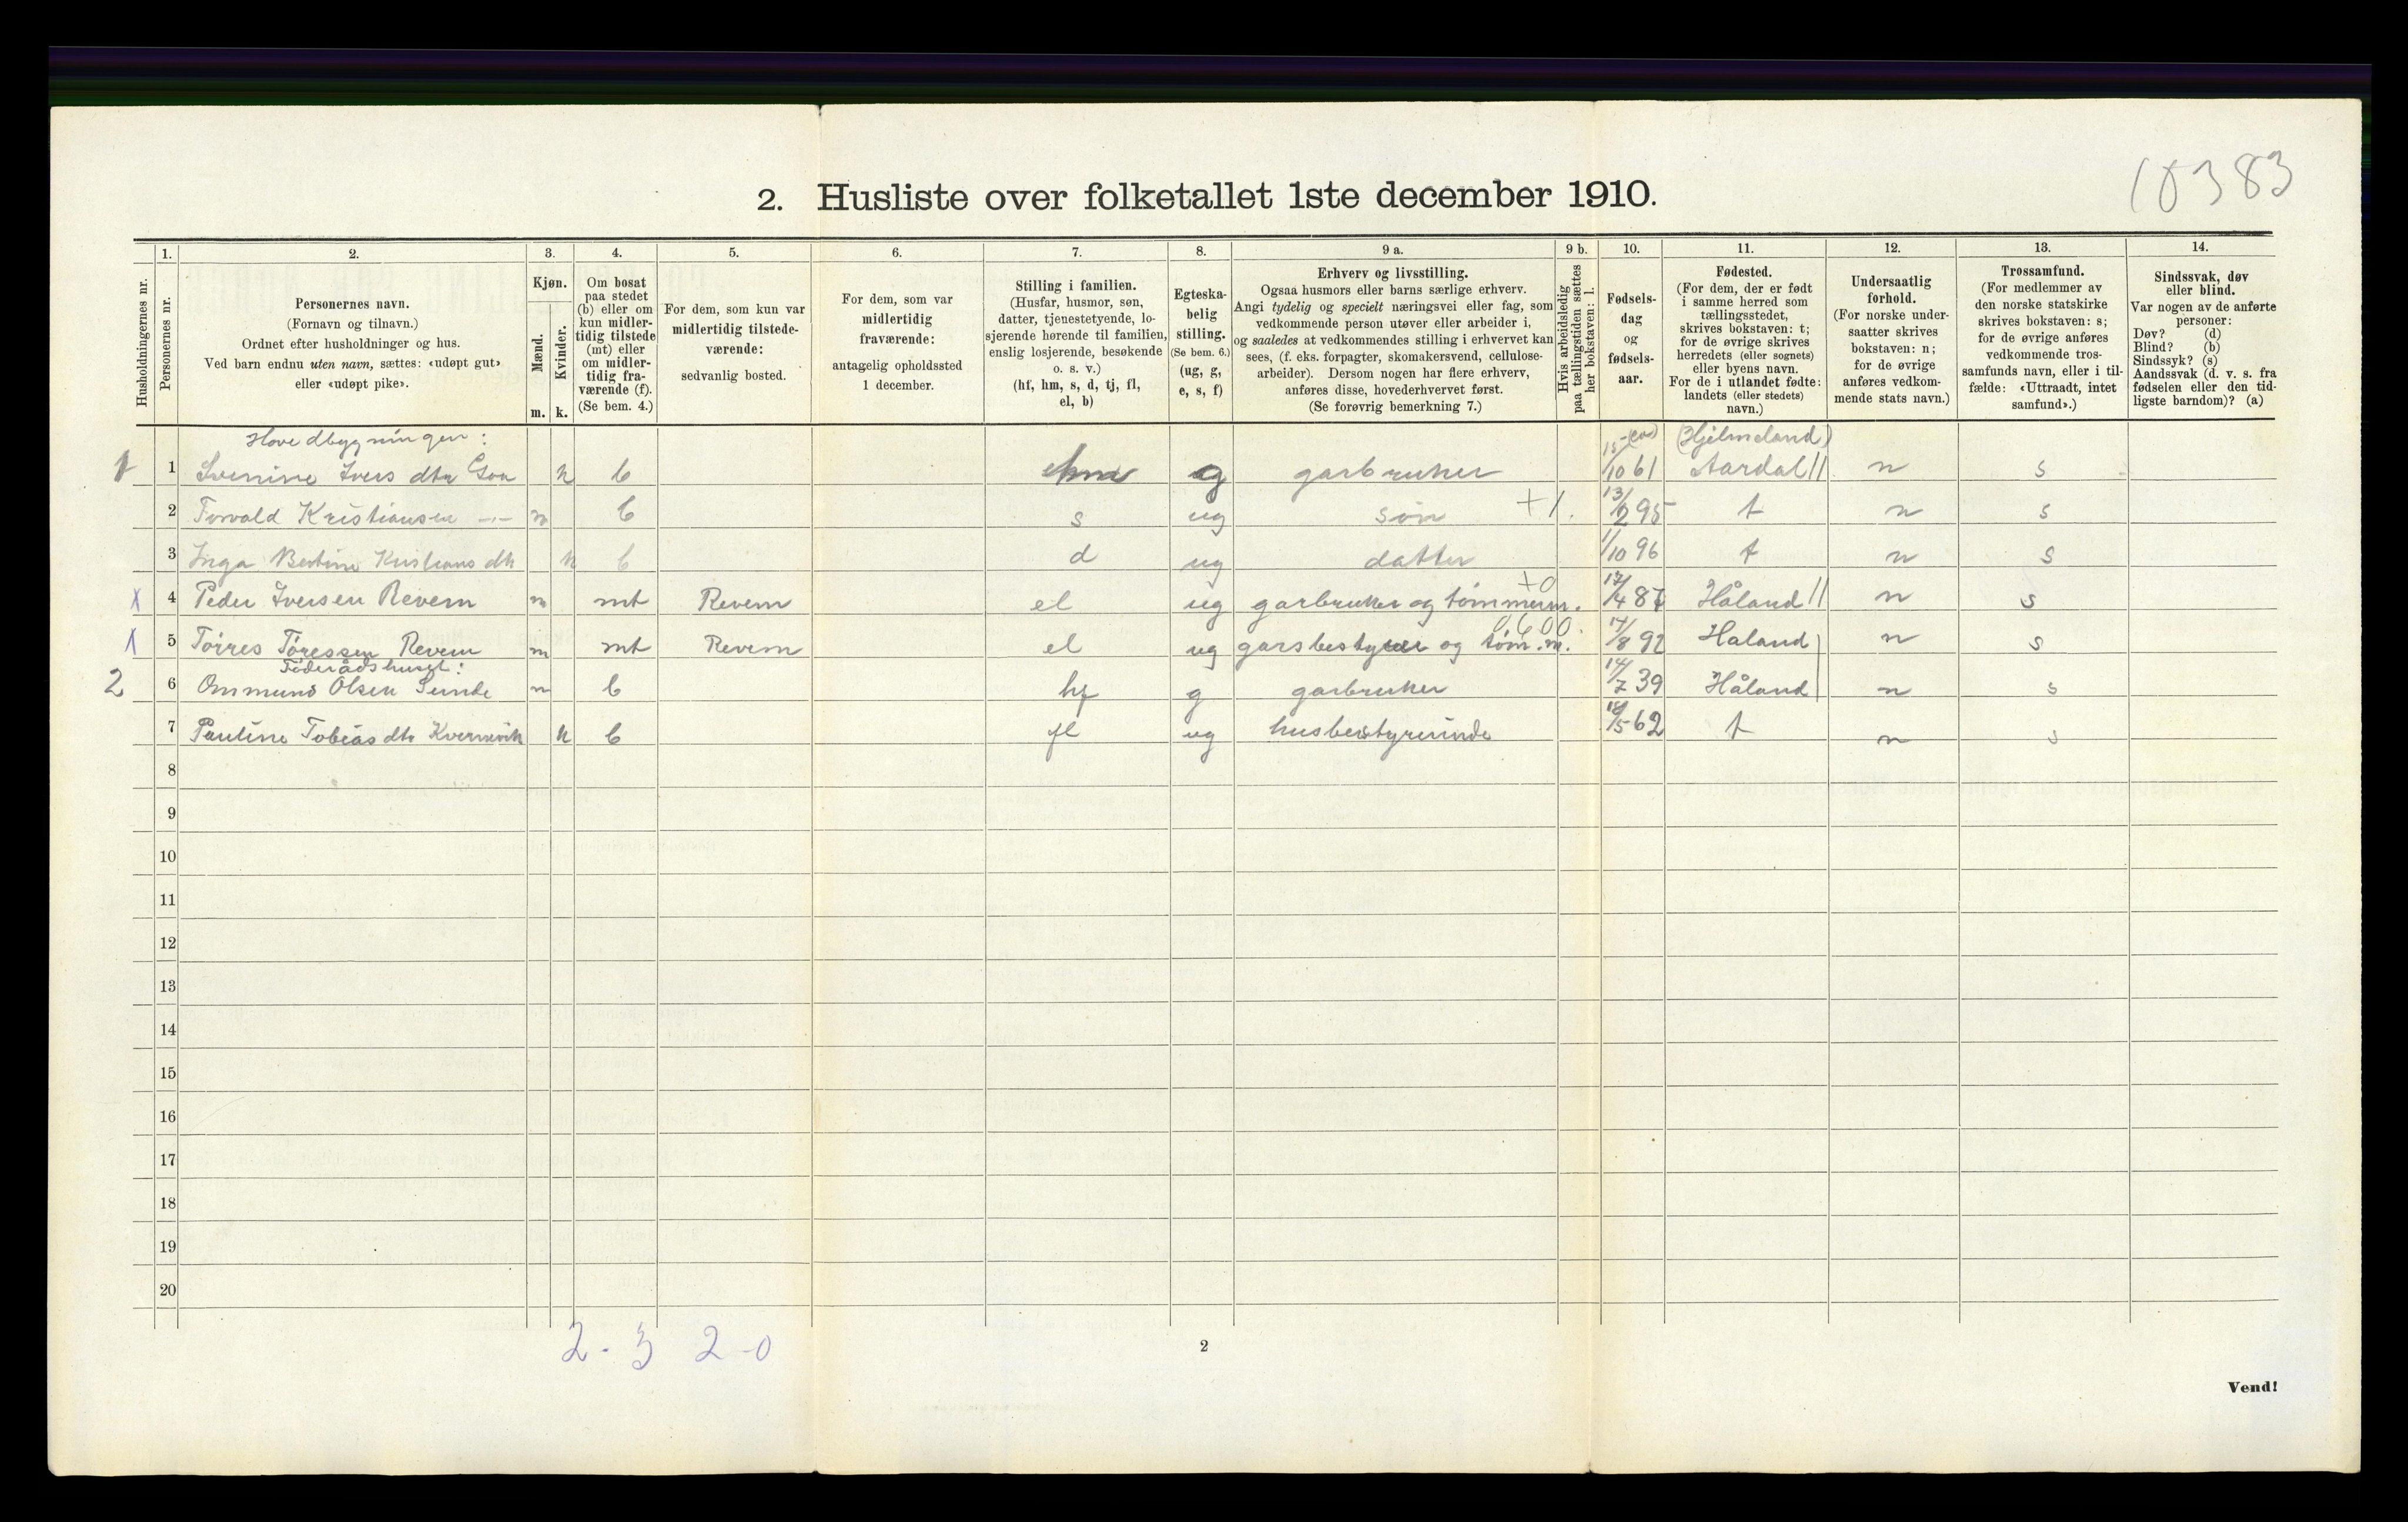 10383
2. Husliste over folketallet 1ste december 1910.
Husholdningernes nr.
1.
Personernes nr.
2.
Personernes navn.
(Fornavn og tilnavn.)
Ordnet efter husholdninger og hus.
Ved barn endnu uten navn, sættes: «udøpt gut»
eller «udøpt pike».
3.
Kjøn.
Mænd.
Kvinder.
m. k.
4.
Om bosat
paa stedet
(b) eller om
kun midler-
tidig tilstede
(mt) eller
om midler-
tidig fra-
værende (f).
(Se bem. 4.)
5.
For dem, som kun var
midlertidig tilstede-
værende:
sedvanlig bosted.
6.
For dem, som var
midlertidig
fraværende:
antagelig opholdssted
1 december.
7.
Stilling i familien.
(Husfar, husmor, søn,
datter, tjenestetyende, lo-
sjerende hørende til familien,
enslig losjerende, besøkende
o. s. v.)
(hf, hm, s, d, tj, fl,
el, b)
8.
Egteska-
belig
stilling.
(Se bem. 6.)
(ug, g,
e, s, f)
9 a.
Erhverv og livsstilling.
Ogsaa husmors eller barns særlige erhverv.
Angi tydelig og specielt næringsvei eller fag, som
vedkommende person utøver eller arbeider i,
og saaledes at vedkommendes stilling i erhvervet kan
sees, (f. eks. forpagter, skomakersvend, cellulose-
arbeider). Dersom nogen har flere erhverv,
anføres disse, hovederhvervet først.
(Se forøvrig bemerkning 7.)
9 b.
Hvis arbeidsledig
paa tællingstiden sættes
her bokstaven: l.
10.
Fødsels-
dag
og
fødsels-
aar.
11.
Fødested.
(For dem, der er født
i samme herred som
tællingsstedet,
skrives bokstaven: t;
for de øvrige skrives
herredets (eller sognets)
eller byens navn.
For de i utlandet fødte:
landets (eller stedets)
navn.)
12.
Undersaatlig
forhold.
(For norske under-
saatter skrives
bokstaven: n;
for de øvrige
anføres vedkom-
mende stats navn.)
13.
Trossamfund.
(For medlemmer av
den norske statskirke
skrives bokstaven: s;
for de øvrige anføres
vedkommende tros-
samfunds navn, eller i til-
fælde: «Uttraadt, intet
samfund».)
14.
Sindssvak, døv
eller blind.
Var nogen av de anførte
personer:
Døv? (d)
Blind? (b)
Sindssyk? (s)
Aandssvak (d. v. s. fra
fødselen eller den tid-
ligste barndom)? (a)
Hovedbygningen: (Hjelmeland)
1 1 Svenine Ivers dtr Goa k b hm g garbruker 15/10 61 Aardal // n s
2 Torvald Kristiansen -"- m b s ug søn +1. 13/2 95 t n s
3 Inga Bertine Kristians dtr k b d ug datter 1/10 96 t n s
x 4 Peder Iversen Revem m mt Revem el ug garbruker og tømmerm. +0 Håland // n s
x 5 Tórres Tóressen Revem m mt Revem el ug garsbestyrer og tóm.m. 0,600. 17/8 92 Håland n s
Føderådshuset:
2 6 Ommund Olsen Sunde m b hf g garbruker 14/7 39 Håland n s
7 Pauline Tobias dtr Kvernevik k b fl ug husbestyrerinde 18/5 62 t n s
8
9
10
11
12
13
14
15
16
17
18
19
20
2 - 3 2 - 0
2
Vend!